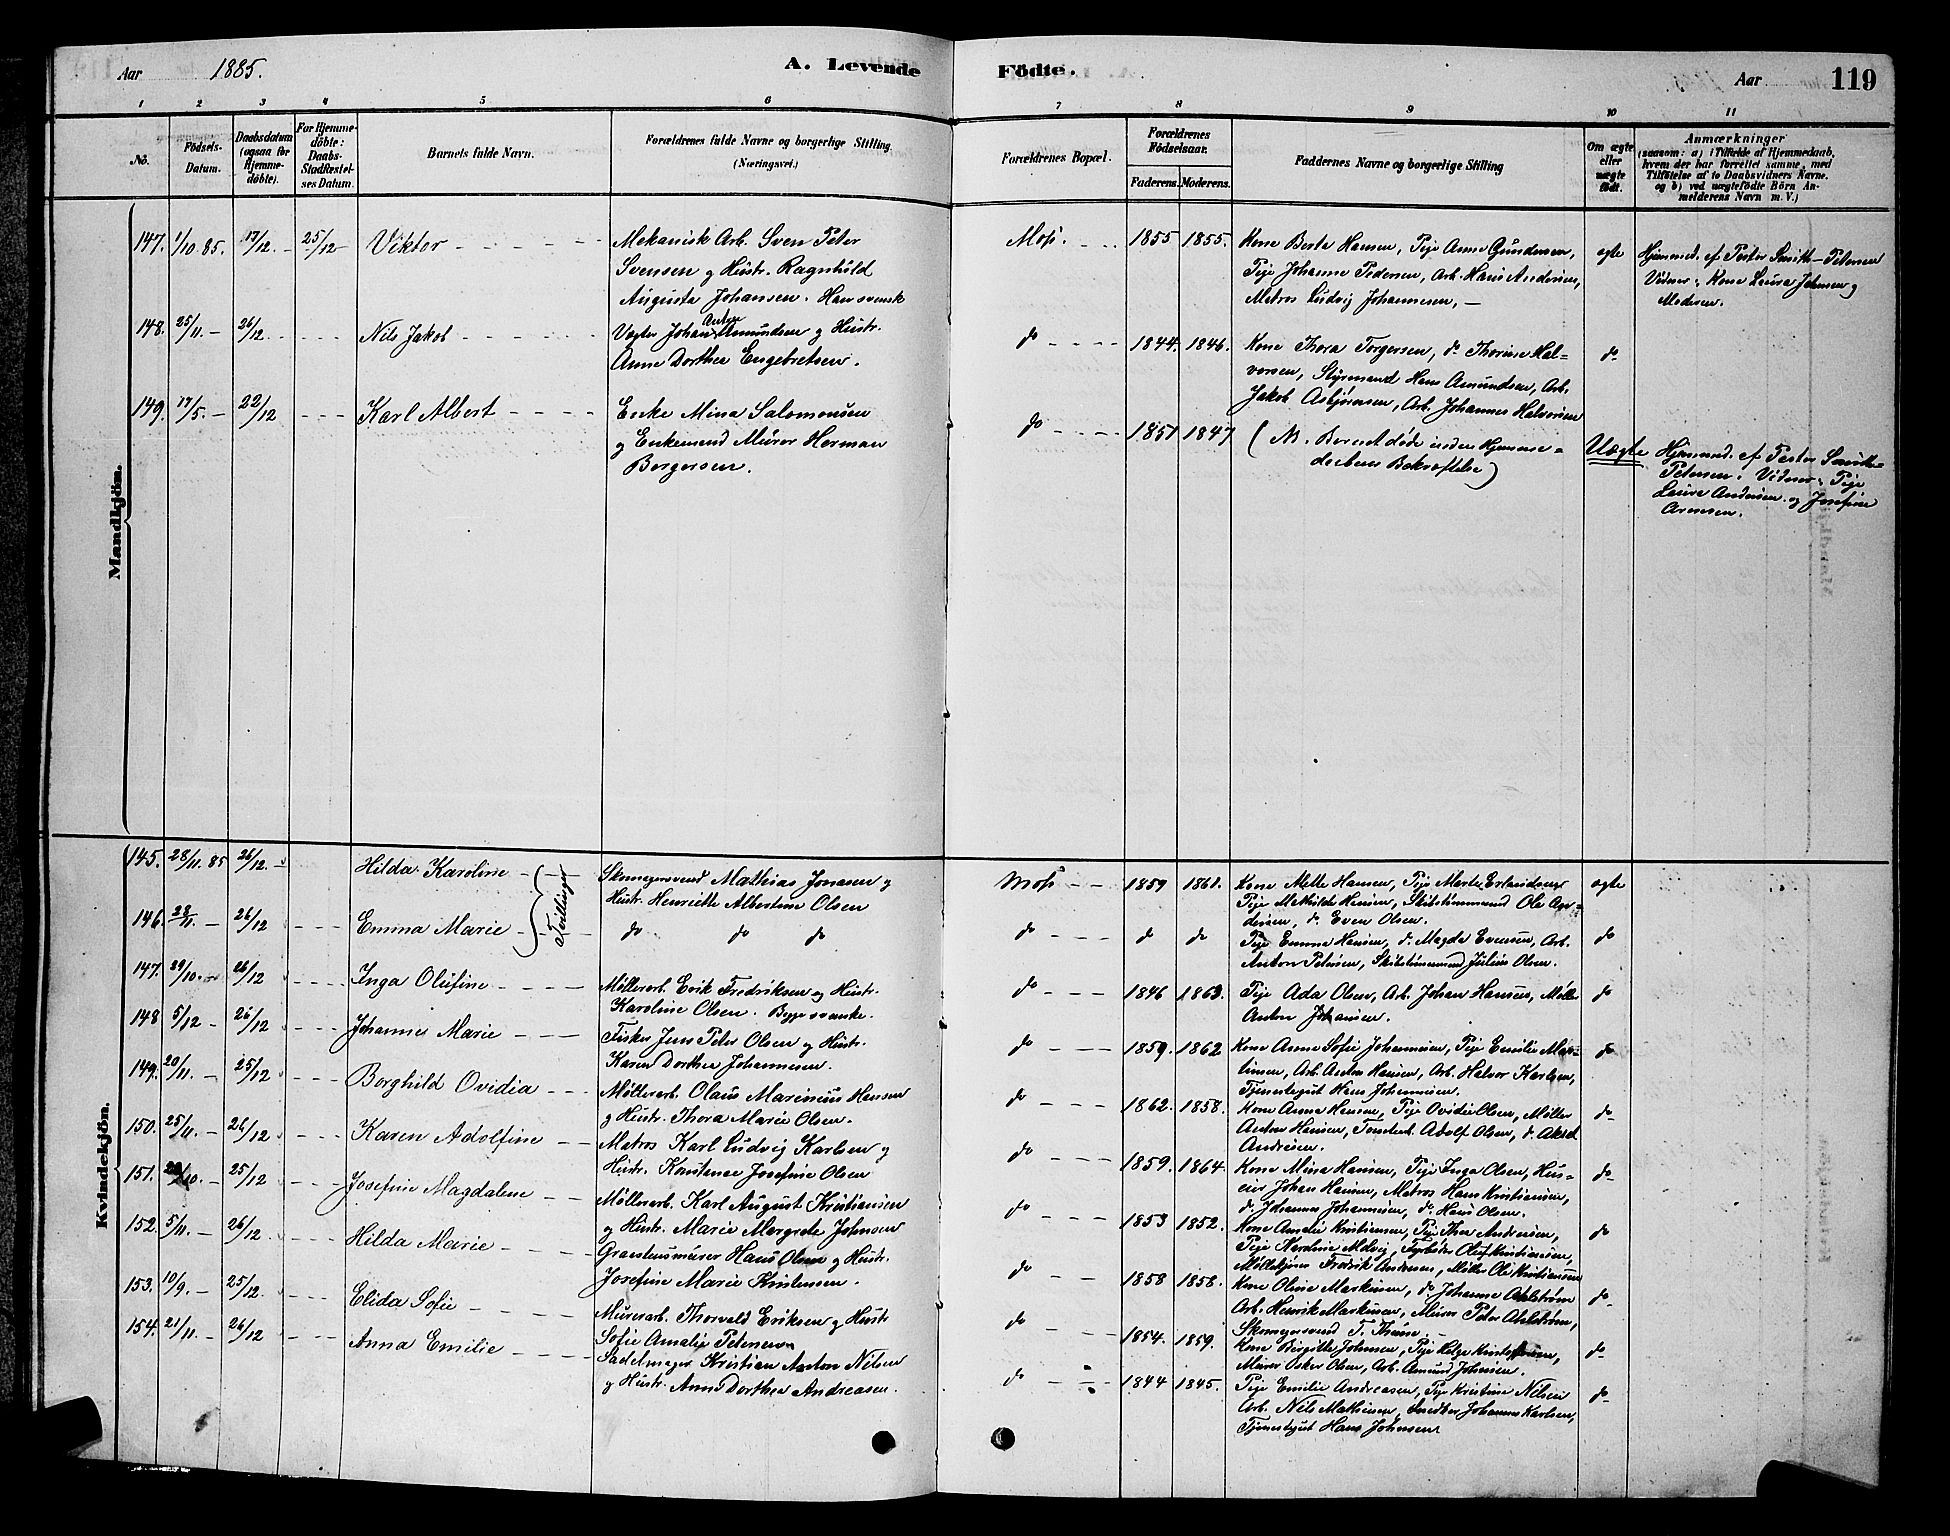 Aar 1885. A. Levende
1 2 3 4 5 6
No. Födsels-Datum. Daabsdatum (ogsaa for Hjemme-döbte). For Hjemme-döbte: Daabs-Stadfæstel-ses Datum. Barnets fulde Navn. Forældrenes fulde Navne og borgerlige Stilling (Næringsvei.)
Mandkjön.
147. 1/10 85. 17/12 - 25/12 Viktor Mekanisk Arb. Sven Peter
Svensen og Hustr. Ragnhild
Augusta Johansen. Han svensk
148. 25/11 - 26/12 Nils Jakob Vogter Johan Anton Amundsen og Hustr.
Anne Dorthea Engebretsen.
149. 17/5 - 22/12 Karl Albert Enke Mina Salomonsen
og Enkemand Murer Herman
Borgersen.
Kvindekjön.
145. 28/11 85 26/12 Hilda Karoline Tvillinger Skomagersvend Mathias Jonasen og
Hustr. Henriette Albertine Olsen
146. 28/11 - 26/12 Emma Marie do do do
147. 29/10 26/12 Inga Olufine Möllerarb. Erik Fredriksen og Hustr.
Karoline Olsen. Begge svenske.
148 5/12 - 26/12 Johanne Marie Fisker Jens Peter Olsen og Hustr.
Karen Dorthea Johannesen.
149. 20/11 - 25/12 Borghild Ovidia Möllerarb. Olaus Marinius Hansen
og Hustr. Thora Marie Olsen.
150. 25/11 - 26/12 Karen Adolfine Matros Karl Ludvig Karlsen og
Hustr. Konstance Josefine Olsen
151. /10 - 25/12 Josefine Magdalene Möllerarb. Karl August Kristiansen
og Hustr. Marie Margrete Johnsen
152. 5/11 - 26/12 Hilda Marie Graastensmurer Hans Olsen og Hustr.
Josefine Marie Kristensen.
153. 10/9 - 25/12 Elida Sofie Murerarb. Thorvald Eriksen og Hustr
Sofie Amalie Petersen
154. 21/11 - 26/12 Anna Emilie Sadelmager Kristian Anton Nilsen
og Hustr. Anne Dorthea Andreasen.
Födte. Aar 119
7 8 9 10 11
Forældrenes Bopæl. Forældrenes Födselsaar. Faderens. Moderens. Faddernes Navne og borgerlige Stilling Om ægte eller uægte födt. Anmærkninger
(saasom: a) i Tilfælde af Hjemmedaab,
hvem der har forrettet samme, med
Tilföielse af to Daabsvidners Navne.
og b) ved uægtefödte Börn An-
melderens Navn m. V.)
Moss. 1855 1855. Kone Berte Hansen, Pige Anne Gundersen, ægte Hjemmed. af Pastor Smith-Petersen
Pige Johanne Pedersen, Arb. Hans Andersen, Vidner: Kone Laura Johnsen og
Matros Ludvig Johannesen, - Moderen.
do 1844. 1846. Kone Thora Torgersen, do Thorine Hal- do
vorsen, Styrmand Hans Amundsen, Arb.
Jakob Asbjörnsen, Arb. Johannes Halvorsen
do 1851 1847 (NB. Barnet döde inden Hjemme- Uægte Hjemmed. af Pastor Smith-
daabens Bekræftelse) Petersen. Vidner: Pige
Laura Andersen og Josefine
Arnesen.
Moss 1859 1861. Kone Mette Hansen, Pige Marte Erlandsen ægte
Pige Mathilde Hansen, Skibstömmermand Ole An-
dersen, do Even Olsen.
do do do Pige Emma Hansen, do Magda Evensen, Arb. do
Anton Petersen, Skibstömmermand Julius Olsen.
do 1846 1863. Pige Ada Olsen, Arb. Johan Hansen, Möller do
Anton Johansen.
do 1859. 1862 Kone Anne Sofie Johannesen, Pige Emilie Mar- do
tinsen, Arb. Anton Hansen, Arb. Halvor Karlsen,
Tjenestegut Hans Johannesen.
do 1862. 1858. Kone Anna Hansen, Pige Ovidie Olsen, Möller do
Anton Hansen, Adolf Olsen, do Aksel
Andresen.
do 1859. 1864. Kone Mina Hansen, Pige Inga Olsen, Hus- do
eier Johan Hansen, Matros Hans Kristiansen,
do Johannes Johannesen, do Hans Olsen.
do 1853 1852. Kone Amalie Kristiansen, Pige Andersen, do
Pige Karoline Fyrböder Oluf Kristiansen,
Fredrik Andersen, Möller Ole Kristiansen
do 1858 1858. Kone Oline Markusen, do Johanne Ahlström do
Arb. Henrik Markusen, Murer Peter Ahlström,
Skomagersvend T. Thune.
do 1854. 1859. Kone Birgitte Johnsen, Pige Helga Kristoffersen, do
Murer Oskar Olsen, Arb. Amund Johnsen.
do 1844 1845. Pige Emilie Andreasen, Pige Kristine Nilsen do
Arb. Nils Mathisen, Snedker Johannes Karlsen,
Tjenestegut Hans Johnsen